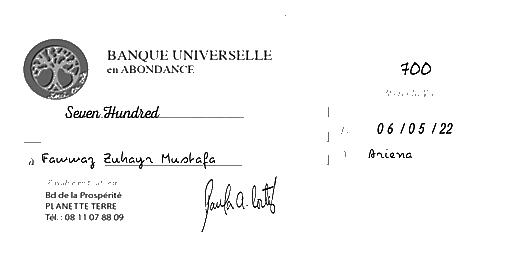 BANQUE UNIVERSELLE
en ABONDANCE
700
Seven Hundred
06/05/22
à Fawwaz Zuhayr Mustafa
Ariena
Bd de la Prospérité
PLANETTE TERRE
Tél. : 08 11 07 88 09